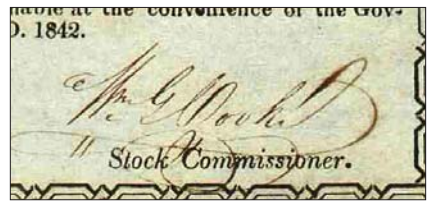 mable at the convenience of the Gov-
D. 1842.
Wm. G. Cooke
Stock Commissioner.